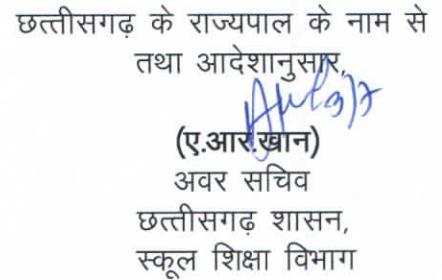 छत्तीसगढ़ के राज्यपाल के नाम से
तथा आदेशानुसार,
(ए.आर.खान)
अवर सचिव
छत्तीसगढ़ शासन,
स्कूल शिक्षा विभाग